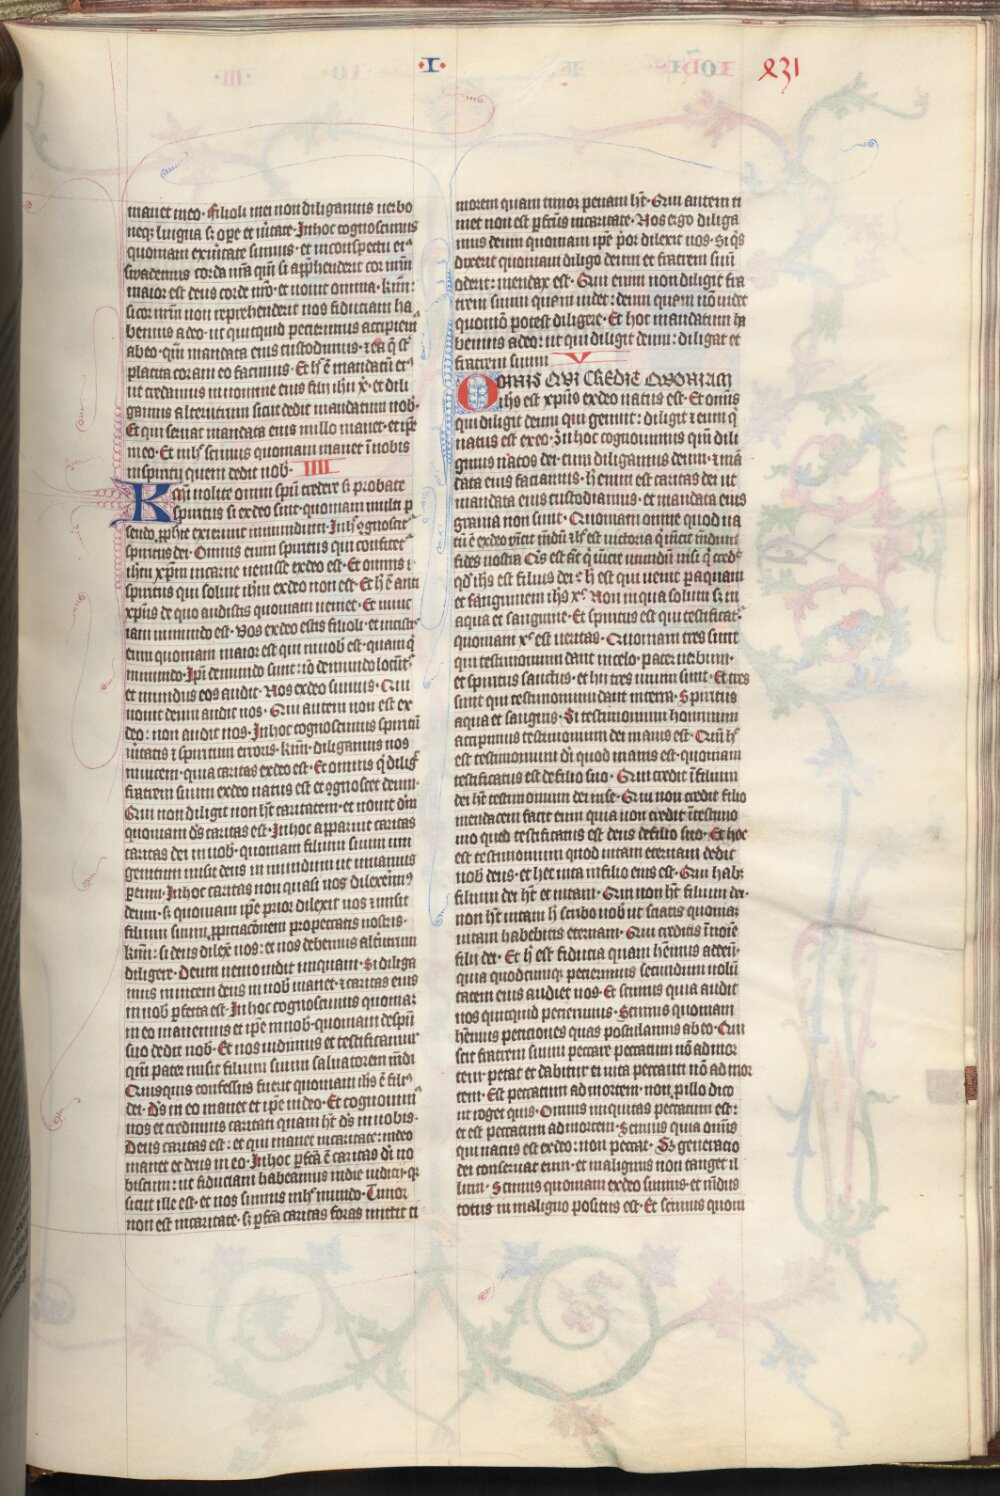 ·I·
manet in eo· Filioli mei non diligamus uerbo
neq; lingua s; ope et uitate· In hoc cognoscimus
quoniam ex uitate sumus· et in conspectu ei᾽
suademus corda nra qm si apphenderit cor nrm
maior est deus corde nro· et nouit omnia· kmi:
si cor nrm non reprehenderit nos fiduciam ha
bemus a deo· ut quicquid petierimus accipiem᾽
ab eo· qm mandata eius custodimus· ⁊ ea q st
placita coram eo facimus· Et h e mandatu ei᾽
ut credamus in nomine eius filii ihu x· et dili
gamus alterutrum sicut dedit mandatum nob·
Et qui seruat mandata eius in illo manet· et ipe
in eo· Et in h scimus quoniam manet i nobis
in spiritu quem dedit nob· IIII
Kmi nolite omni spu credere s; probate
spiritus si ex deo sint· quoniam multi p
seudo pphete exierunt in mundum· In h ognoscit᾽
spiritus dei· Omnis enim spiritus qui confitet᾽
ihm xpm in carne uenisse ex deo est· Et omnis i
spiritus qui soluit ihm ex deo non est· Et h e anti
xpus de quo audistis quoniam ueniet· Et nunc
iam in mundo est· Vos ex deo estis filioli· et uicistis
eum quoniam maior est qui in uob est· quam q
in mundo· Ipi de mundo sunt: io de mundo locunt᾽
et mundus eos audit· Nos ex deo sumus· Qui
nouit deum audit nos· Qui autem non est ex
deo: non audit nos· In hoc cognoscimus spiritu
uitatis ⁊ spiritum erroris· kmi· diligamus nos
inuicem· quia caritas ex deo est· Et omnis q dilig᾽
fratrem suum ex deo natus est et ognoscit deum·
Qui non diligit non ht caritatem· et nouit dm
quoniam ds caritas est· In hoc apparuit caritas
caritas dei in uob· quoniam filium suum uni
genitum misit deus in mundum ut uiuamus
p eum· In hoc caritas non quasi nos dilexerim᾽
deum· s; quoniam ipe prior dilexit nos ⁊ misit
filium suum ppiciacionem pro peccatis nostris·
kmi: si deus dilex nos: et nos debemus altutrum
diligere· Deum nemo uidit unquam· Si diliga
mus inuicem deus in nob manet· ⁊ caritas eius
in nob pfecta est· In hoc cognoscimus quoniaz
in eo manemus et ipe in nob· quoniam de spu
suo dedit nob· Et nos uidimus et testificamur
qm pater misit filium suum saluatorem mdi
Quisquis confessus fuerit quoniam ihs e fili᾽
dei· Ds in eo manet et ipe in deo· Et cognouim᾽
nos et credimus caritati quam ht ds in nobis·
Deus caritas est: et qui manet in caritate: in deo
manet et deus in eo· In hoc pfca e caritas di no
biscum: ut fiduciam habeamus in die iudicij· q;
sicut ille est· et nos sumus in h mundo· Timor
non est in caritate· s; pfca caritas foras mittit ti
morem quam timor penam ht· Qui autem ti
met non est pfcus in caritate· Nos ergo diliga
mus deum quoniam ipe por dilexit nos· Si qs
dixerit quoniam diligo deum et fratrem suu
oderit: mendax est· Qui enim non diligit fra
trem suum quem uidet: deum quem no uidet
quomo potest diligere· Et hoc mandatum ha
bemus a deo: ut qui diligit deum: diligat et
fratrem suum V
OMNIS QVI CREDIT QVONIAM
ihs est xpus ex deo natus est· Et omis
qui diligit deum qui genuit: diligit ⁊ eum q
natus est ex eo· In hoc cognouimus qm dili
gimus natos dei· cum diligamus deum· ⁊ ma
data eius faciamus· h enim est caritas dei ut
mandata eius custodiamus· et mandata eius
grauia non sunt· Quoniam omne quod na
tu e ex deo uicit mdu ⁊ h est uictoria q uicit mdum
fides nostra· Qis est at q uicit mundu nisi q cred᾽
qd ihs est filius dei· h est qui uenit p aquam
et sanguinem ihs x· Non in aqua solum s; in
aqua et sanguine· Et spiritus est qui testificat᾽
quoniam x est ueritas· Quoniam tres sunt
qui testimonium dant in celo· pater uerbum·
et spiritus sanctus· et hii tres unum sunt· Et tres
sunt qui testimonium dant in terra· Spiritus
aqua et sanguis· Si testimonium hominum
accipimus testimonium dei maius est· Qm h
est testimonium di quod maius est· quoniam
testificatus est de filio suo· Qui credit i filium
dei ht testimonium dei in se· Qui non credit filio
mendacem facit eum quia non credit i testimo
nio quod testificatus est deus de filio suo· Et hoc
est testimonium quod uitam eternam dedit
nob deus· et hec uita in filio eius est· Qui habz
filium dei ht et uitam· Qui non ht filium dei·
non ht uitam· h scribo uob ut sciatis quoniaz
uitam habebitis eternam· Qui creditis i noie
filii dei· Et h est fiducia quam hemus ad eu·
quia quodcunq; petierimus secundum uolu
tatem eius audiet nos· Et scimus quia audit
nos quicquid petierimus· Scimus quoniam
hemus petitiones quas postulamus ab eo· Qui
scit fratrem suum peccare peccatum no ad mor
tem· petat et dabitur ei uita peccanti no ad mor
tem· Est peccatum ad mortem· non p illo dico
ut roget quis· Omnis iniquitas peccatum est:
et est peccatum ad mortem· Scimus quia omis
qui natus est ex deo: non peccat· Sz generatio
dei conseruat eum· et malignus non tanget il
lum· Scimus quoniam ex deo sumus· et mdus
totus in maligno positus est· Et scimus quoni